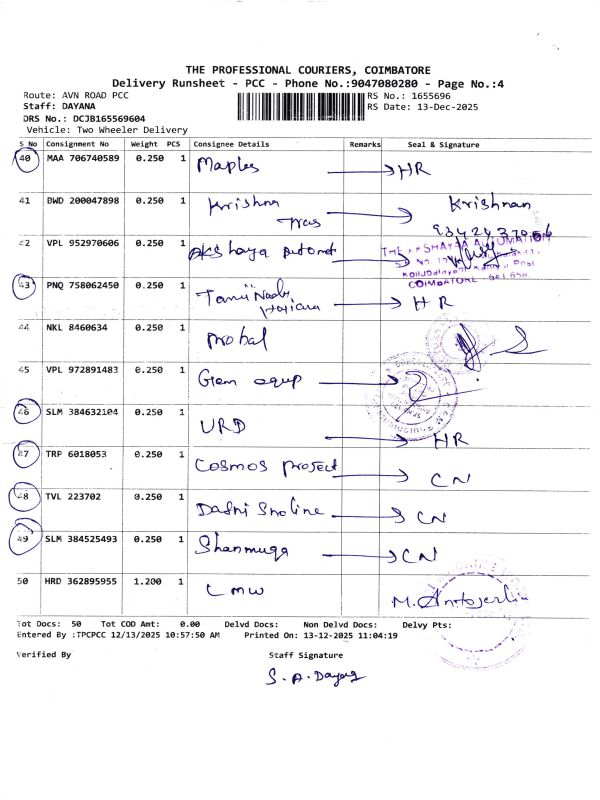 THE PROFESSIONAL COURIERS, COIMBATORE
Delivery Runsheet - PCC - Phone No.:9047080280 - Page No.:4
Route: AVN ROAD PCC
RS No.: 1655696
Staff: DAYANA
RS Date: 13-Dec-2025
DRS No.: DCJB165569604
Vehicle: Two Wheeler Delivery
S No Consignment No Weight PCS Consignee Details Remarks Seal & Signature
40 MAA 706740589 0.250 1 Maples HR
41 BWD 200047898 0.250 1 Krishna Krishnan
42 VPL 952970606 0.250 1 Akshaya THE AKSHAYA AUTOMATION
COIMBATORE
43 PNQ 758062450 0.250 1 HR
44 NKL 8460634 0.250 1
45 VPL 972891483 0.250 1 Gem equp
46 SLM 384632104 0.250 1 URD HR
47 TRP 6018053 0.250 1 Cosmos project CN
48 TVL 223702 0.250 1 CN
49 SLM 384525493 0.250 1 Shanmuga CN
50 HRD 362895955 1.200 1 LMW
Tot Docs: 50 Tot COD Amt: 0.00 Delvd Docs: Non Delvd Docs: Delvy Pts:
Entered By :TPCPCC 12/13/2025 10:57:50 AM Printed On: 13-12-2025 11:04:19
Verified By Staff Signature
S. A. Dayana